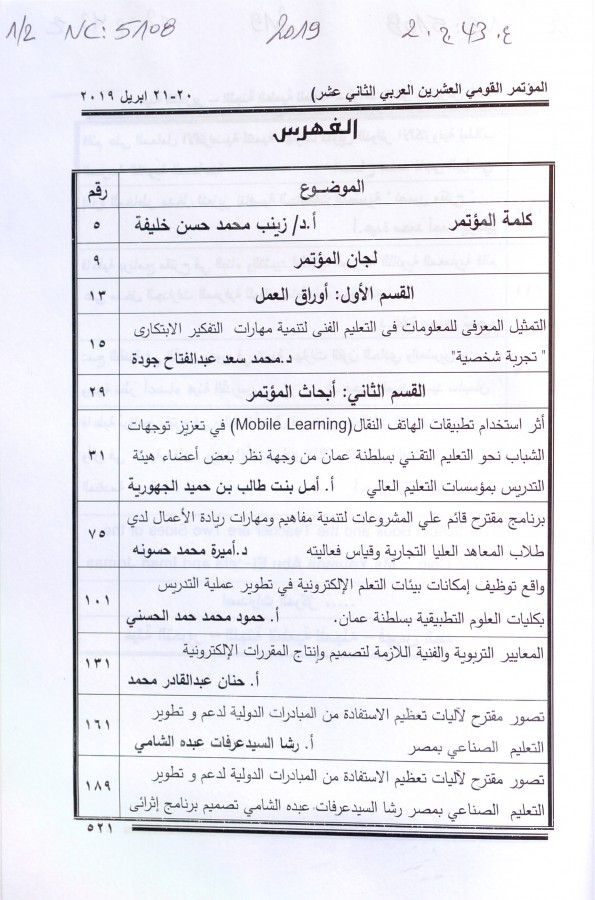 1/2 NC: 5108 2019
المؤتمر القومي العشرين العربي الثاني عشر) ٢٠-٢١ ابريل ٢٠١٩
الفهرس
الموضـوع رقم
كلمة المؤتمر أ.د/ زينب محمد حسن خليفة ٥
لجان المؤتمر ٩
القسم الأول: أوراق العمل ١٣
التمثيل المعرفى للمعلومات فى التعليم الفنى لتنمية مهارات التفكير الابتكارى
" تجربة شخصية" د.محمد سعد عبدالفتاح جودة ١٥
القسم الثاني: أبحاث المؤتمر ٢٩
أثر استخدام تطبيقات الهاتف النقال(Mobile Learning) في تعزيز توجهات
الشباب نحو التعليم التقـني بسلطنة عمان من وجهة نظر بعض أعضاء هيئة ٣١
التدريس بمؤسسات التعليم العالي أ. أمل بنت طالب بن حميد الجهورية
برنامج مقترح قائم علي المشروعات لتنمية مفاهيم ومهارات ريادة الأعمال لدي
طلاب المعاهد العليا التجارية وقياس فعاليته د.أميرة محمد حسونه ٧٥
واقع توظيف إمكانات بيئات التعلم الإلكترونية في تطوير عملية التدريس
بكليات العلوم التطبيقية بسلطنة عمان. أ. حمود محمد حمد الحسني ١٠١
المعايير التربوية والفنية اللازمة لتصميم وإنتاج المقررات الإلكترونية
أ. حنان عبدالقادر محمد ١٣١
تصور مقترح لآليات تعظيم الاستفادة من المبادرات الدولية لدعم و تطوير
التعليم الصناعي بمصر أ. رشا السيدعرفات عبده الشامي ١٦١
تصور مقترح لآليات تعظيم الاستفادة من المبادرات الدولية لدعم و تطوير
التعليم الصناعي بمصر رشا السيدعرفات عبده الشامي تصميم برنامج إثرائى ١٨٩
٥٢١